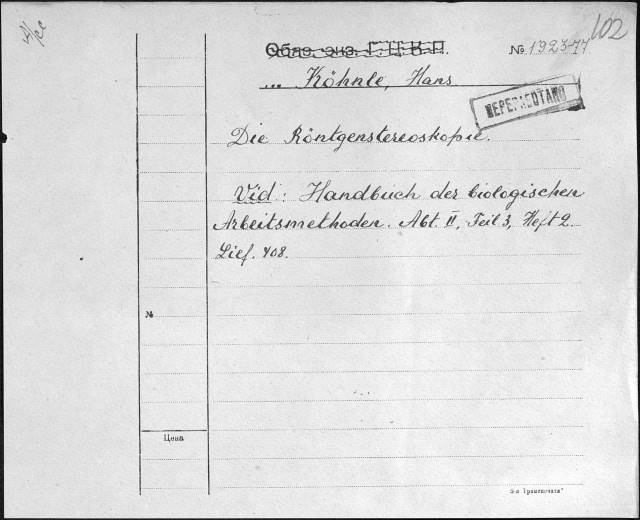 102
Обяз. экз. Г.Ц.К.П.
№ 1923-77
... Köhnle, Hans.
ПЕРЕРАБОТАНО
Die Röntgenstereoskopie.
Vid: Handbuch der biologischen
Arbeitsmethoden. Abt. II, Teil 3, Heft 2.
Lief. 408.
№
Цена